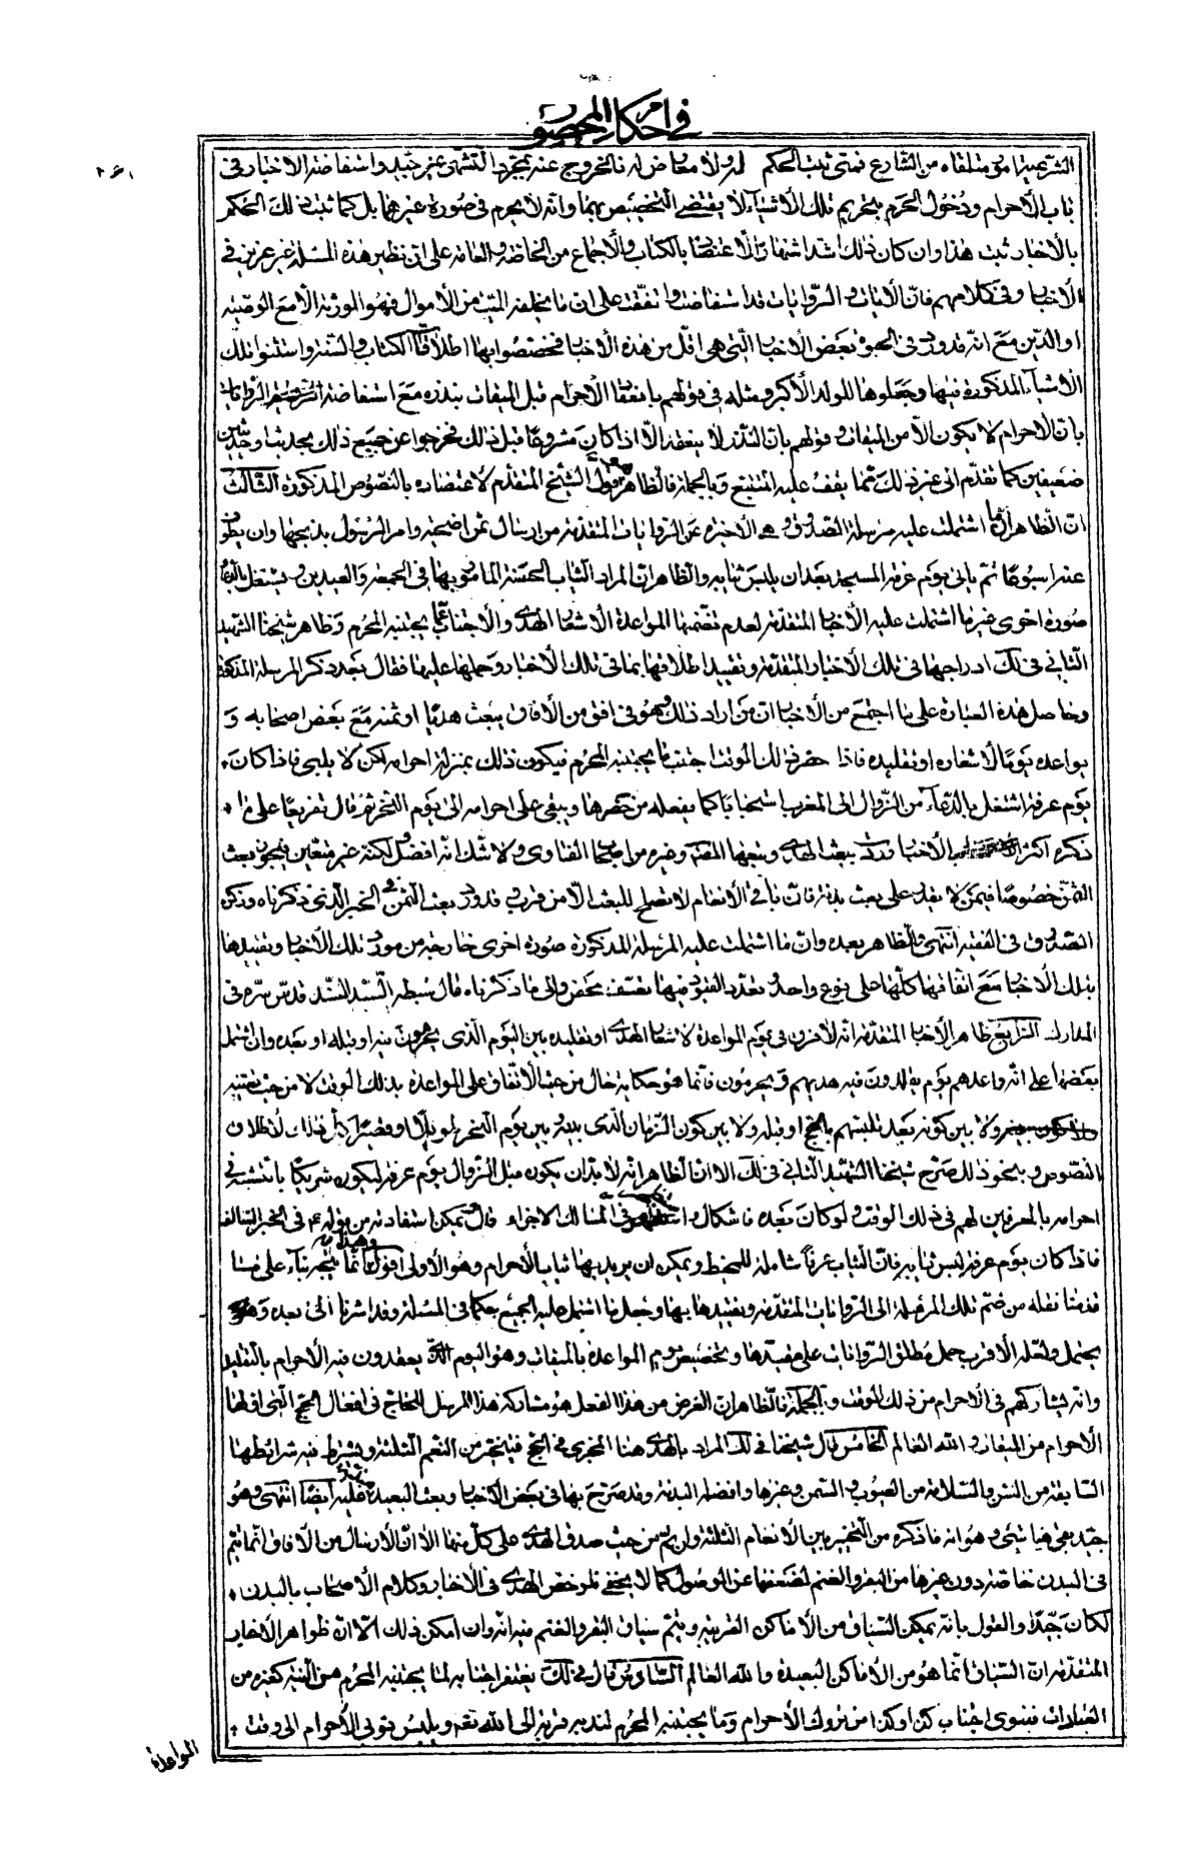 في احكام المحصور
الشرعية امور متلقاه من الشارع فمتى ثبت الحكم لم ولا معارض له فالخروج عنه بمجرد التشهي غير جيد واستفاضة الاخبار في
باب الاحرام ودخول الحرم بتحريم تلك الاشياء لا يقتضي التخصيص بهما وانه لا يحرم في صورة غيرهما بل كما ثبت ذلك الحكم
بالاخبار ثبت هذا وان كان ذلك اشد اشتهارا لاعتضاده بالكتاب والاجماع من الخاصة والعامه على ان نظير هذه المسئلة غير عزيز في
الاخبار وفي كلامهم فان الايات والروايات قد استفاضت واتفقت على ان ما يخلفه الميت من الاموال فهو لورثته الا مع الوصية
او الدين مع انه قد ورد في الحبوة بعض الاخبار التي هي اقل من هذه الاخبار فخصصوا بها اطلاق الكتاب والسنة واستثنوا تلك
الاشياء المذكورة فيها وجعلوها للولد الاكبر ومثله في قولهم بانعقاد الاحرام قبل الميقات بنذره مع استفاضة الروايات
بان الاحرام لا يكون الا من الميقات وقولهم بان النذر لا ينعقد الا اذا كان مشروعا قبل ذلك فخرجوا عن جميع ذلك بحديث او حديثين
ضعيفين كما تقدم الى غير ذلك مما يقف عليه المتتبع وبالجملة فالظاهر هو قول الشيخ المتقدم لاعتضاده بالنصوص المذكورة الثالث
ان الظاهر ان ما اشتملت عليه مرسلة الصدوق وهي الاخيرة من الروايات المتقدمة من ارسال ثمن اضحية وامر الرسول بذبحها وان يطوف
عنه اسبوعا ثم ياتي يوم عرفة المسجد بعد ان يلبس ثيابه والظاهر ان المراد الثياب الحسنة المامور بها في الجمعة والعيدين ويشتغل بالدعاء
صورة اخرى غير ما اشتملت عليه الاخبار المتقدمة لعدم تضمنها المواعدة الاشعار الهدي والاجتناب عما يجتنبه المحرم وظاهر شيخنا الشهيد
الثاني في لك ادراجها في تلك الاخبار المتقدمة وتقييد اطلاقها بما في تلك الاخبار وحملها عليها فقال بعد ذكر المرسلة المذكورة
وحاصل هذه العبارة على ما اجتمع من الاخبار ان من اراد ذلك وهو في افق من الافاق يبعث هديا او ثمنه مع بعض اصحابه و
يواعده يوما لاشعاره او تقليده فاذا حضر ذلك الوقت اجتنب ما يجتنبه المحرم فيكون ذلك بمنزلة احرامه لكن لا يلبي فاذا كان
يوم عرفة اشتغل بالدعاء من الزوال الى المغرب استحبابا كما يفعله من حضرها ويبقى على احرامه الى يوم النحر ثم قال تفريعا على ما
ذكره اكثر الاخبار وردت ببعث الهدي وتبعها المصنف وغيره من اصحاب الفتاوى ولا شك انه افضل ولكنه غير متعين فيجوز بعث
الثمن خصوصا فيمن لا يقدر على بعث بدنة فان باقي الانعام لا تصلح للبعث الا من قرب وقد ورد بعث الثمن في الخبر الذي ذكرناه وذكره
الصدوق في الفقيه انتهى والظاهر بعده وان ما اشتملت عليه المرسلة المذكورة صورة اخرى خارجة من مورد تلك الاخبار وتقييدها
بتلك الاخبار مع اتفاقها كلها على نوع واحد وتعدد القيود فيها تعسف محض والى ما ذكرناه قال سبطه السيد السند قدس سره في
المدارك الرابع ظاهر الاخبار المتقدمة انه لا فرق في يوم المواعدة لاشعار الهدي او تقليده بين اليوم الذي يحرمون فيه او قبله او بعده وان اشتمل
بعضها على انه واعدهم يوم يقلدون فيه هديهم ويحرمون فانما هو حكاية حال من حيث الاتفاق على المواعدة بذلك الوقت لا من حيث تعينه
ولا بين كونه بعد تلبسهم بالحج او قبله ولا بين كون الزمان الذي بينه وبين يوم النحر طويلا او قصيرا كل ذلك لاطلاق
النصوص وبنحو ذلك صرح شيخنا الشهيد الثاني في لك الا ان الظاهر انه لا بد ان يكون قبل الزوال يوم عرفة ليكون شريكا بالنسبة في
احرامه بالمحرمين لهم في ذلك الوقت ولو كان بعده فاشكال واستظهر في المسالك الاجزاء قال ويمكن استفادته من قوله ع في الخبر السالف
فاذا كان يوم عرفة لبس ثيابه فان الثياب عرفا شاملة للمخيط ويمكن ان يريد بها ثياب الاحرام وهو الاولى اقول وهذا انما يتجه بناء على ما
قدمنا نقله من ضم تلك المرسلة الى الروايات المتقدمة وتقييدها بها وجعل ما اشتمل عليه الجميع حكما في المسئلة وقد اشرنا الى بعده وهو
يحتمل ولعله الاقرب حمل مطلق الروايات على مقيدها وتخصيص يوم المواعدة بالميقات وهو اليوم الذي يعقدون فيه الاحرام بالتقليد
وانه يشاركهم في الاحرام من ذلك الوقت وبالجملة فالظاهر ان الغرض من هذا الفعل هو مشاركة هذا المرسل للحاج في افعال الحج التي اولها
الاحرام من الميقات والله العالم الخامس قال شيخنا في لك المراد بالهدي هنا المجزي في الحج فيتخير من النعم الثلثة ويشترط فيه شرائطها
السابقة من السن والسلامة من العيوب والسمن وغيرها وافضله البدنة وقد صرح بها في بعض الاخبار وبعث البعيد تنبيه عليه ايضا انتهى وهو
جيد بقي هنا شيء وهو انه ما ذكره من التخيير بين الانعام الثلثة وان تم من حيث صدق الهدي على كل منها الا ان الارسال من الافاق انما يتم
في البدن خاصة دون غيرها من البقر والغنم لضعفها عن الوصول كما لا يخفى فلو خص الهدي في الاخبار وكلام الاصحاب بالبدن
لكان جيدا والقول بانه يمكن السياق من الاماكن القريبة ويتم سياق البقر والغنم فيه انه وان امكن ذلك الا ان ظواهر الاخبار
المتقدمة ان السياق انما هو من الاماكن البعيدة والله العالم السادس قال في لك يفتقر اجتنابه لما يجتنبه المحرم من النية كغيره من
العبادات فينوي اجتناب كذا وكذا من تروك الاحرام وما يجتنبه المحرم لندبه قربة الى الله تعه ويلبس ثوبي الاحرام الى وقت
المواعدة